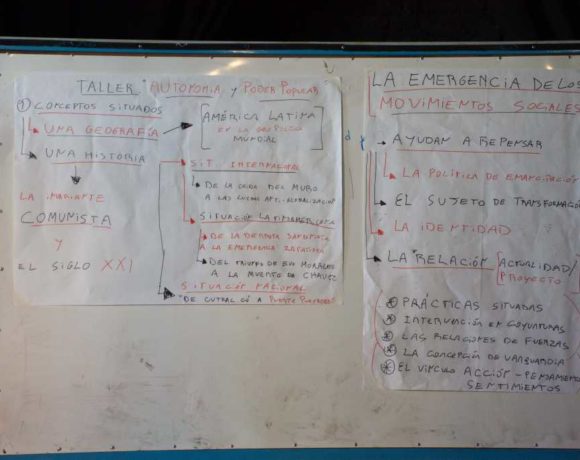 TALLER "AUTONOMIA y PODER POPULAR
① CONCEPTOS SITUADOS
UNA GEOGRAFÍA
AMÉRICA LATINA
EN LA
MUNDIAL
UNA HISTORIA
LA VARIANTE
COMUNISTA
Y
EL SIGLO XXI
SIT. INTERNACIONAL
DE LA CAIDA DEL MURO
A LAS LUCHAS ANTI-GLOBALIZACIÓN
SITUACIÓN LATINOAMERICANA
DE LA DERROTA SANDINISTA
A LA EMERGENCIA ZAPATISTA
DEL TRIUNFO DE EVO MORALES
A LA MUERTE DE CHAVEZ
SITUACIÓN NACIONAL
"DE CUTRAL CÓ A PUENTE PUEYRREDÓN
LA EMERGENCIA DE LOS
MOVIMIENTOS SOCIALES
AYUDAN A REPENSAR
LA POLÍTICA DE EMANCIPACIÓN
EL SUJETO DE TRANSFORMACIÓN
LA IDENTIDAD
LA RELACIÓN [ACTUALIDAD/
PROYECTO
PRÁCTICAS SITUADAS
INTERVENCIÓN EN COYUNTURAS
LAS RELACIONES DE FUERZAS
LA CONCEPCIÓN DE VANGUARDIA
EL VINCULO ACCIÓN - PENSAMIENTO
SENTIMIENTOS